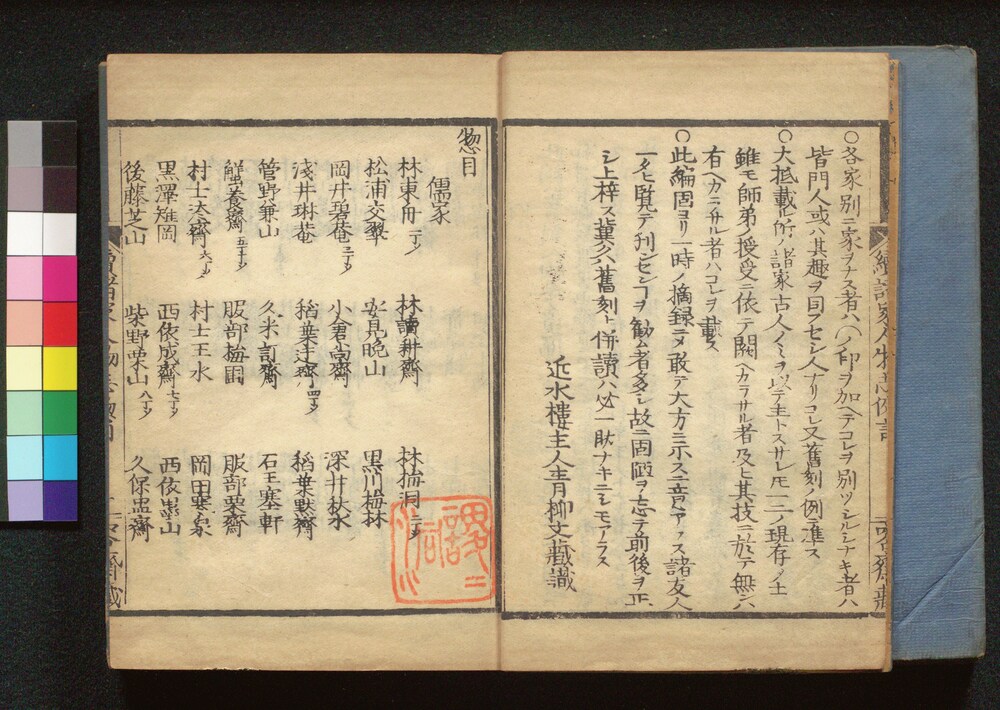 ○各家別ニ家ヲナス者ハ〇ノ印ヲ加ヘテコレヲ別ツシルシナキ者ハ
皆門人或ハ其趣ヲ同フセシ人ナリコレ又舊刻ノ例ニ準ス
○大抵載ル所ノ諸家古人ノミヲ以テ主トスサレ𪜈一二ノ現存ノ士
雖モ師弟ノ授受ニ依テ闕ヘカラサル者及ヒ其技ニ於テ無ンハ
有ヘカラサル者ハコレヲ載ス
○此編固ヨリ一時ノ摘録ニ〆敢テ大方ニ示スニ意アラス諸友人
一タヒ覧テ刊センヿヲ勧ム者多シ故ニ固陋ヲ忘テ前後ヲ正
シ上梓ス冀クハ舊刻ト併讀ハ必一助ナキニシモアラス
近水樓主人青柳文藏識
惣目
儒家
林東冊 一丁メ 林讀耕齋 林梅洞 二丁メ
松浦交翠 安見晩山 黒川梅林
岡井碧菴 三丁メ 小倉尚齋 深井秋水
淺井琳菴 稻葉迂齋 四丁メ 稻葉默齋
管野兼山 久米訂齋 石王塞軒
蟹養齋 五丁メ 服部梅圃 服部栗齋
村士淡齋 六丁メ 村士玉水 岡田寒泉
黒澤雉岡 西依成齋 七丁メ 西依墨山
後藤芝山 柴野栗山 八丁メ 久保盅齋